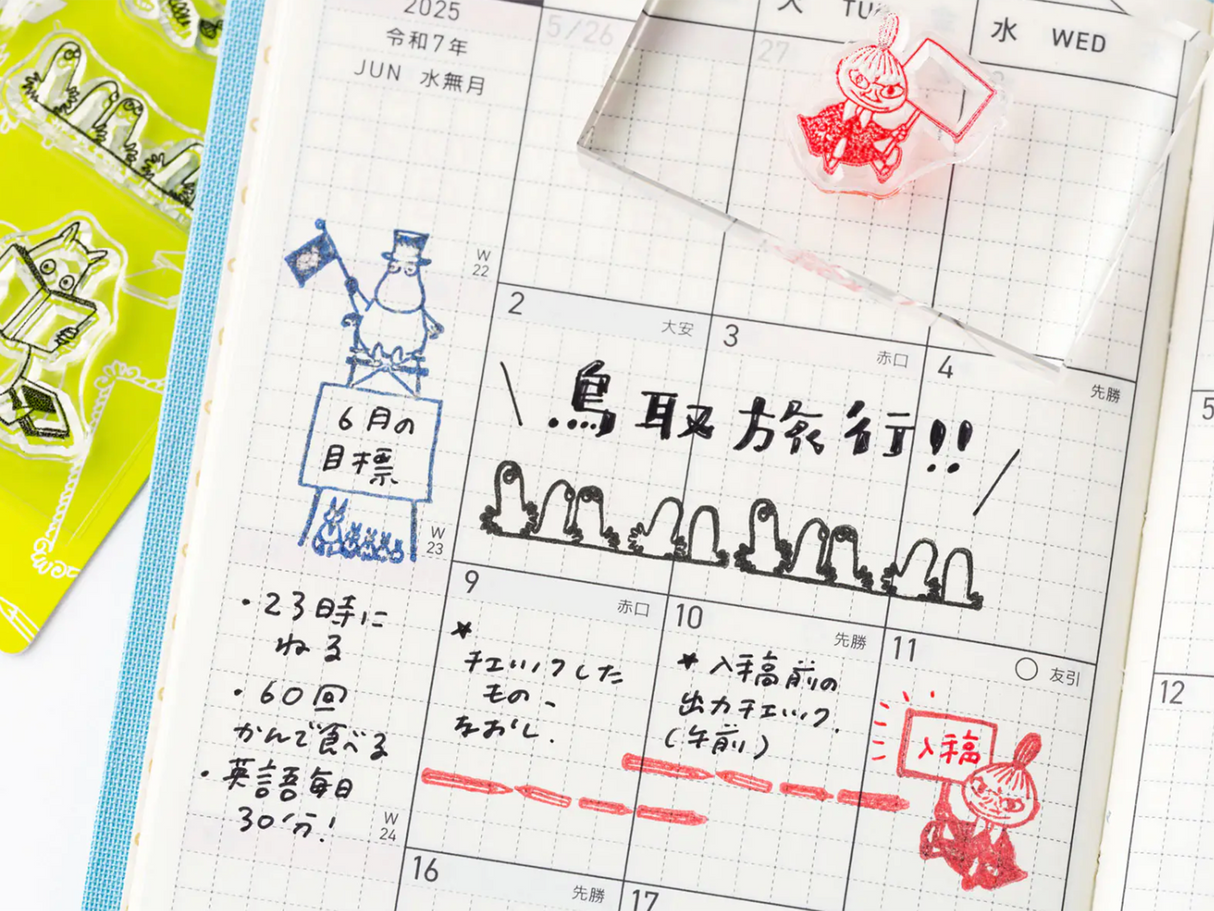 2025
令和7年
JUN 水無月
5/26
27
TUE
水 WED
W
22
2 大安
3 赤口
4 先勝
鳥取旅行!!
6月の
目標
W
23
・23時に
ねる
・60回
かんで食べる
・英語毎日
30分!
W
24
9 赤口
*
チェックした
もの、
なおし.
10 先勝
*入稿前の
出力チェック.
(午前)
11 友引
入稿
5
12
16 先勝
17